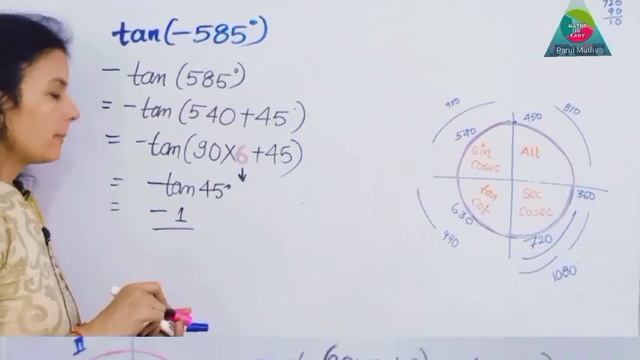 tan(-585°)
- tan(585°)
= - tan(540+45)
= - tan(90×6+45)
= - tan 45°
= - 1
720
90
10
MATHS
IS
EASY
Parul Maths
900
450
810
540
Sin
Cosec
All
360
tan
Cot
Sec
Cosec
630
720
990
1080
II